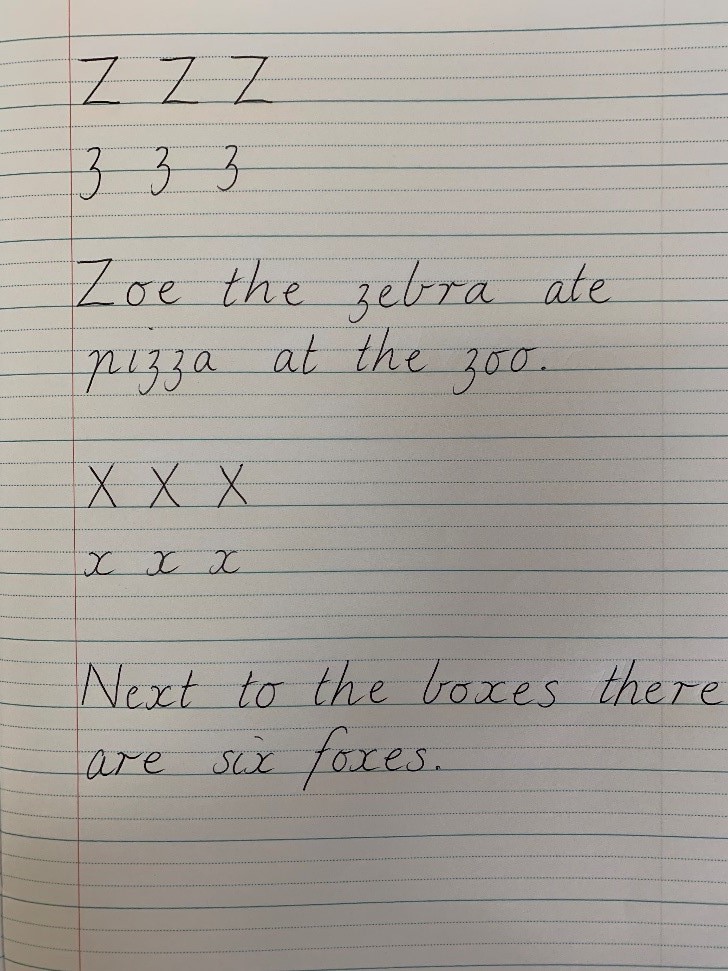 Z Z Z
z z z
Zoe the zebra ate
pizza at the zoo.
X X X
x x x
Next to the boxes there
are six foxes.